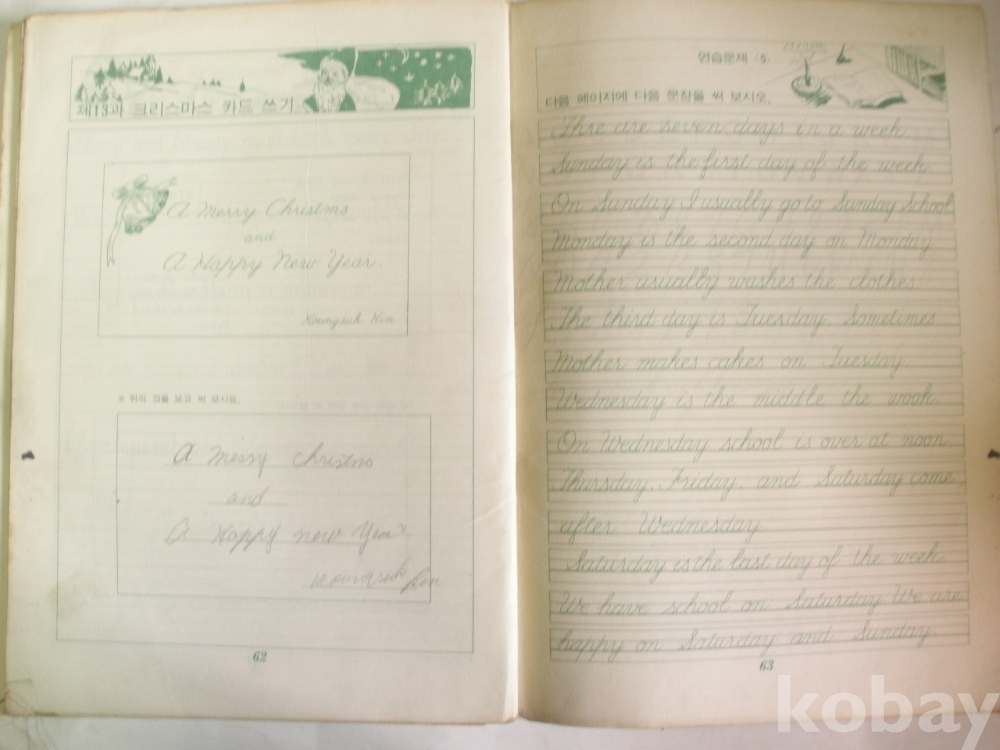 제13과 크리스마스 카드 쓰기
A Merry Christms
and
A Happy New Year.
Youngsuk Kim
※ 위의 것을 보고 써 보시요.
A merry christms
and
A Happy new Year.
Youngsuk Kim
62
연습문제 (5)
다음 페이지에 다음 문장들 써 보시오.
Thre are seven days in a week.
Sunday is the first day of the week.
On Sunday I usually go to Sunday School
Monday is the second day on Monday
Mother usually washes the clothes.
The third day is Tuesday Sometimes
Mother makes cakes on Tuesday.
Wednesday is the middle the wook.
On Wednesday school is over at noon
Thursday, Friday, and Saturday come
after Wednesday.
Saturday is the last day of the week.
We have school on Saturday. We are
happy on Saturday and Sunday.
63
kobay